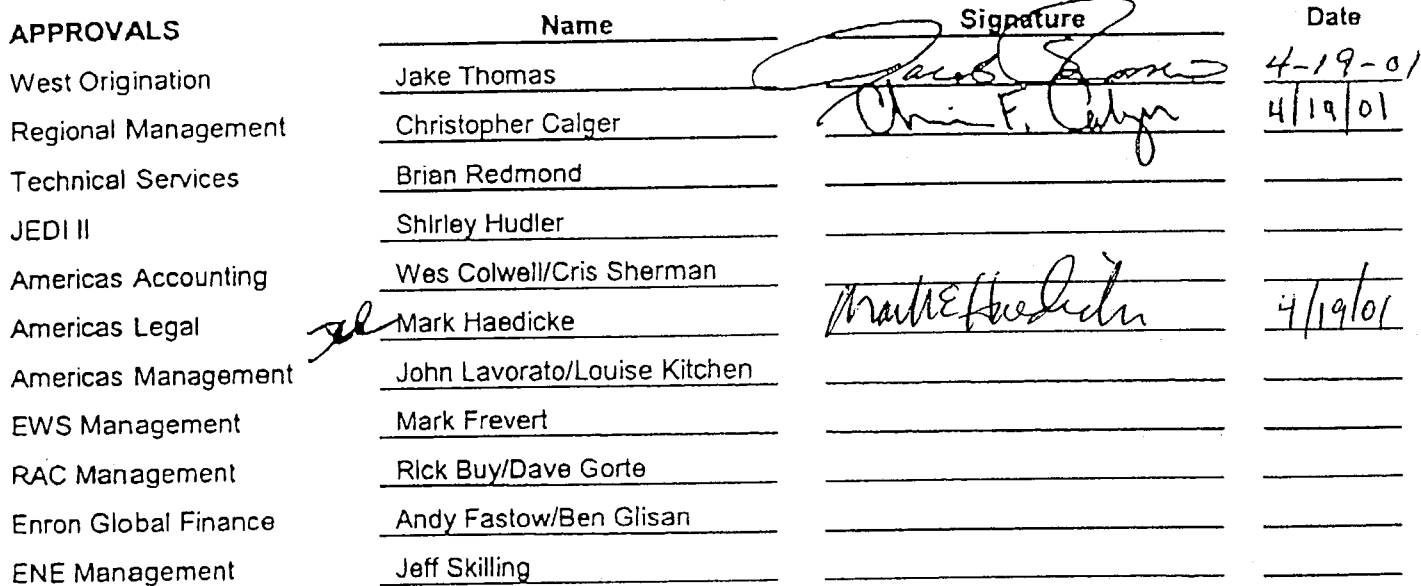 APPROVALS Name Signature Date
West Origination Jake Thomas 4-19-01
Regional Management Christopher Calger Chris F. Calger 4/19/01
Technical Services Brian Redmond
JEDI II Shirley Hudler
Americas Accounting Wes Colwell/Cris Sherman
Americas Legal Mark Haedicke Mark E Haedicke 4/19/01
Americas Management John Lavorato/Louise Kitchen
EWS Management Mark Frevert
RAC Management Rick Buy/Dave Gorte
Enron Global Finance Andy Fastow/Ben Glisan
ENE Management Jeff Skilling